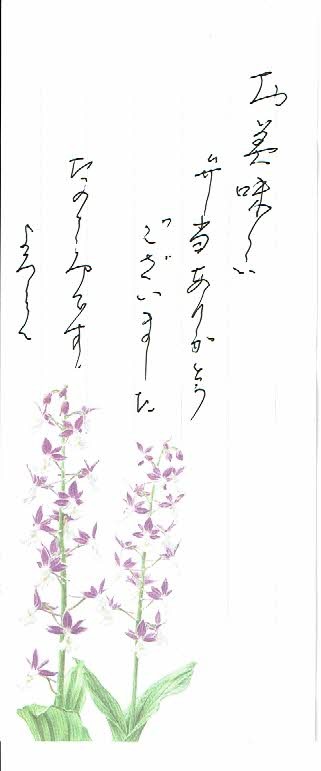 お美味しい
弁当ありがとう
ございました
たのしみです
よろしく